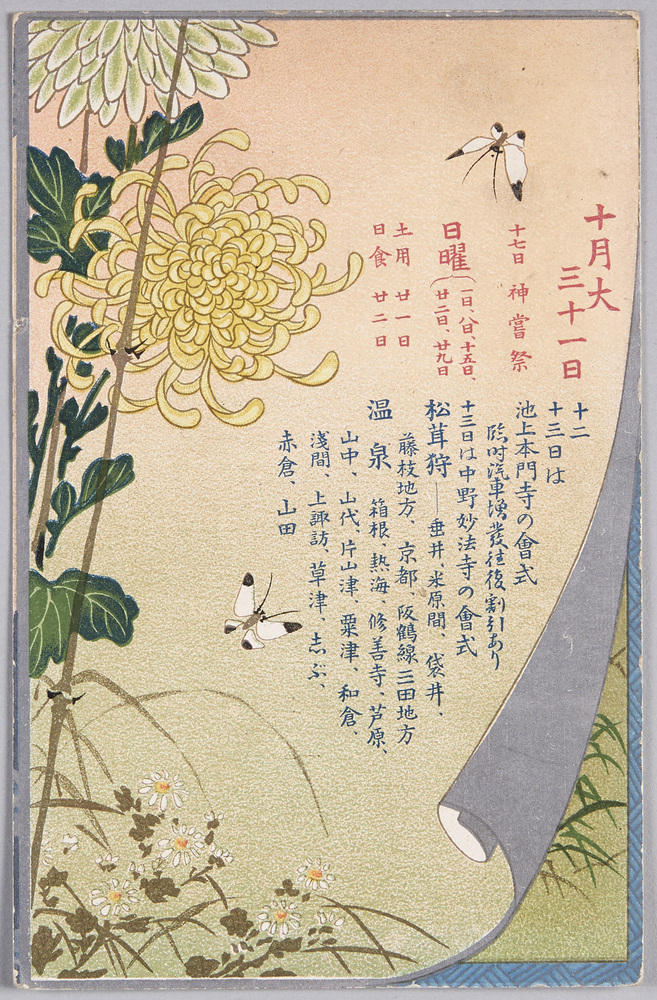 十月大
三十一日
十七日 神嘗祭
日曜(一日、八日、十五日、
廿二日、廿九日
土用 廿一日
日食 廿二日
十二
十三日は
池上本門寺の會式
臨时汽車増發往復割引あり
十三日は中野妙法寺の會式
松茸狩―垂井、米原間、袋井、
藤枝地方、京都、阪鶴線三田地方
温泉 箱根、熱海、修善寺、芦原、
山中、山代、片山津、粟津、和倉、
淺間、上諏訪、草津、志ぶ、
赤倉、山田